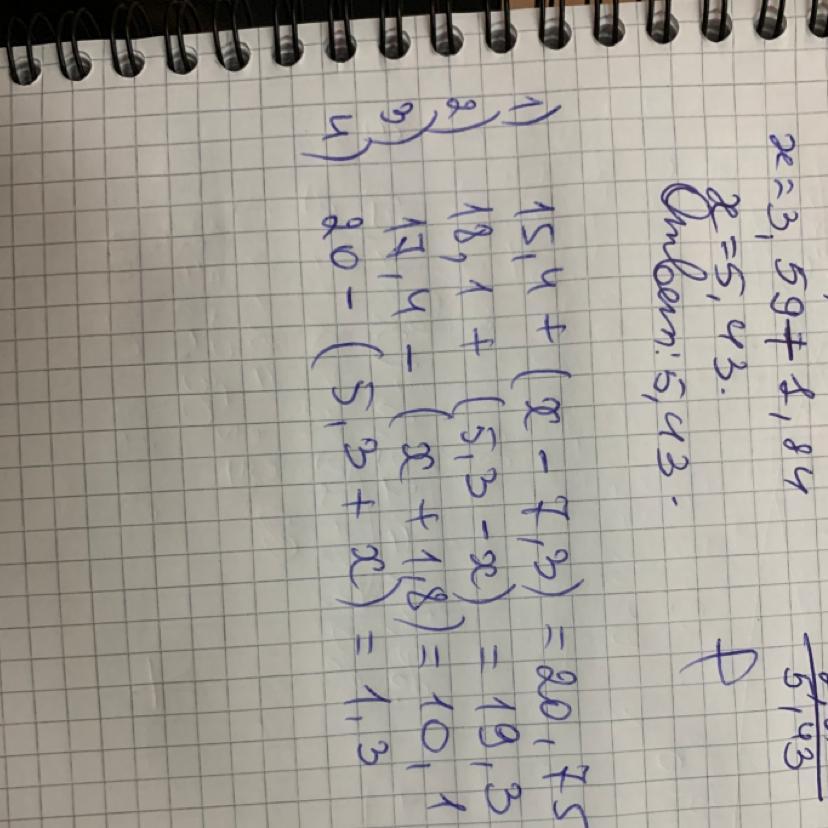 x=3,59+1,84
x=5,43.
Ответ: 5,43.
5,43
1) 15,4+(x-7,3)=20,75
2) 18,1+(5,3-x)=19,3
3) 17,4-(x+1,8)=10,1
4) 20-(5,3+x)=1,3